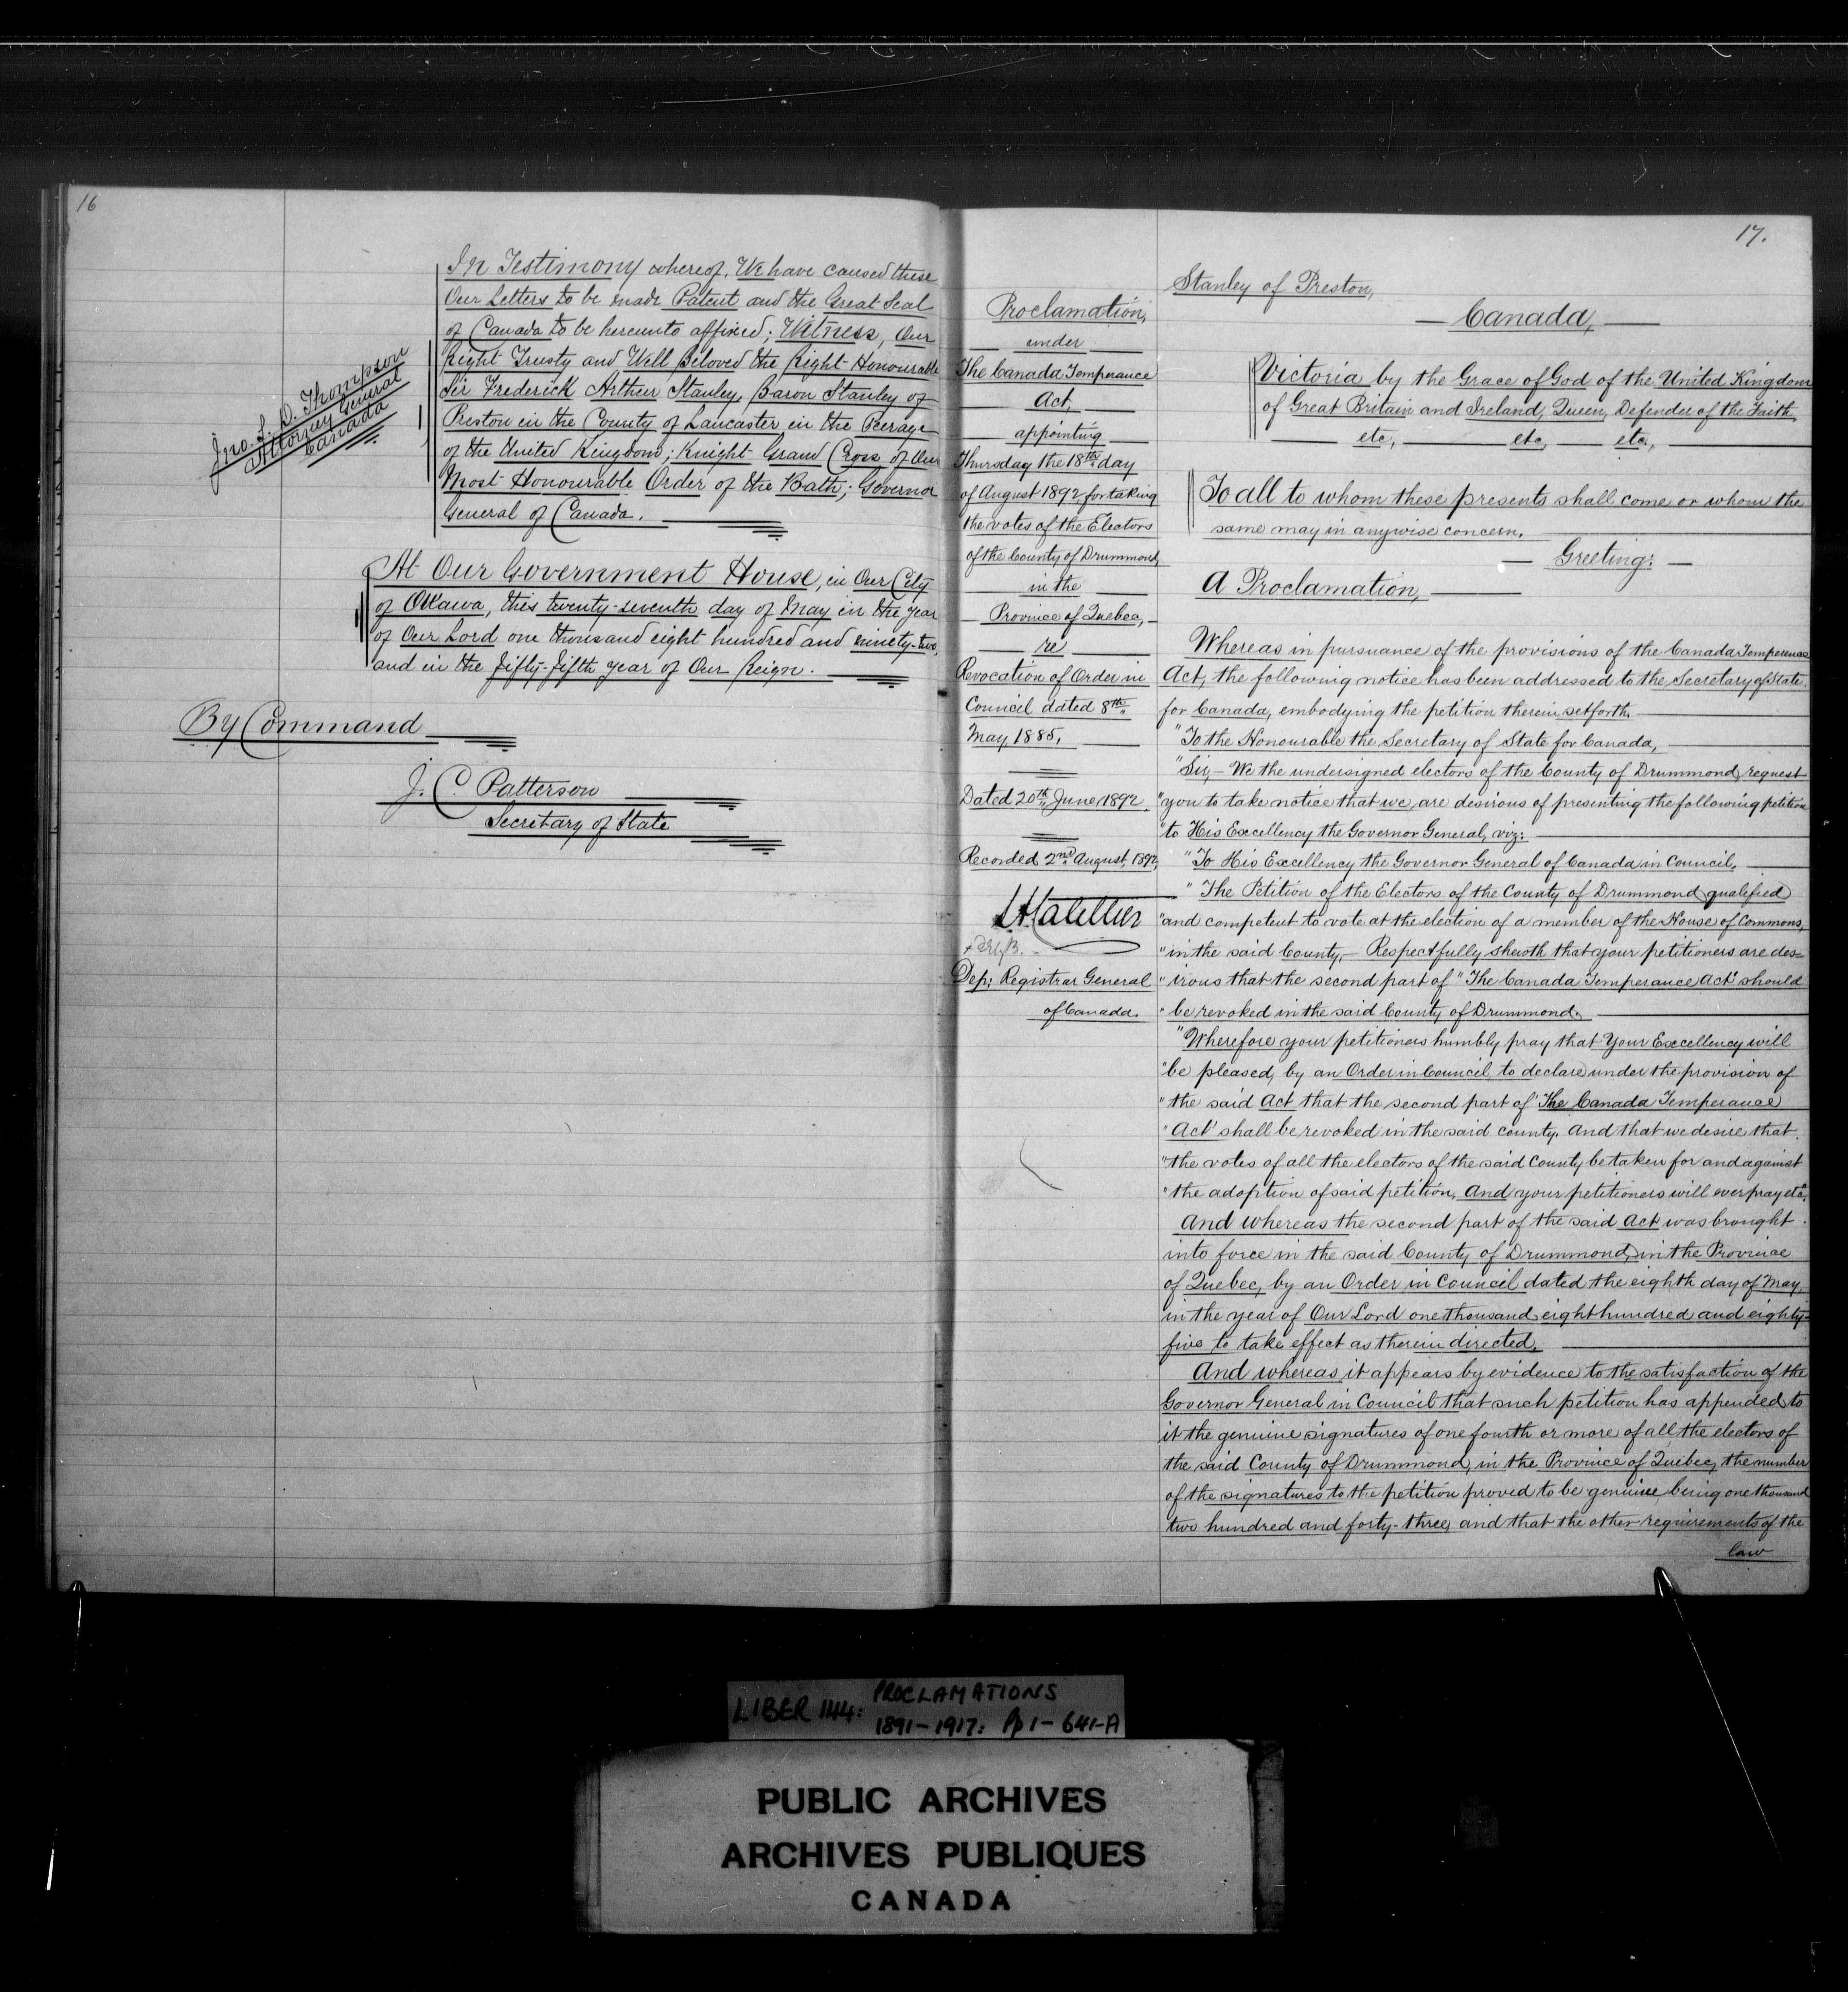 16
In Testimony whereof, We have caused these
Our Letters to be made Patent and the Great Seal
of Canada to be hereunto affixed; Witness, Our
Right Trusty and Well Beloved the Right Honourable
Sir Frederick Arthur Stanley, Baron Stanley of
Preston in the County of Lancaster in the Peerage
of the United Kingdom; Knight Grand Cross of Our
Most Honourable Order of the Bath; Governor
General of Canada.
Jno. S. D. Thompson
Attorney General
Canada
At Our Government House, in Our City
of Ottawa, this twenty-seventh day of May in the year
of Our Lord one thousand eight hundred and ninety-two,
and in the fifty-fifth year of Our Reign.
By Command
J. C. Patterson
Secretary of State
17.
Proclamation,
under
The Canada Temperance
Act,
appointing
Thursday the 18th day
of August 1892, for taking
the votes of the Electors
of the County of Drummond,
in the
Province of Quebec,
re
Revocation of Order in
Council dated 8th
May 1885,
Dated 20th June, 1892.
Recorded 2nd August, 1892,
Dep: Registrar General
of Canada.
Stanley of Preston,
Canada,
Victoria by the Grace of God of the United Kingdom
of Great Britain and Ireland, Queen, Defender of the Faith,
etc, etc, etc,
To all to whom these presents shall come or whom the
same may in anywise concern,
Greeting:
A Proclamation,
Whereas in pursuance of the provisions of the Canada Temperance
Act, the following notice has been addressed to the Secretary of State
for Canada, embodying the petition therein set forth.
"To the Honourable the Secretary of State for Canada,
"Sir, – We the undersigned electors of the County of Drummond request
"you to take notice that we are desirous of presenting the following petition
"to His Excellency the Governor General, viz:
"To His Excellency the Governor General of Canada in Council.
"The Petition of the Electors of the County of Drummond qualified
"and competent to vote at the election of a member of the House of Commons,
"in the said County, – Respectfully sheweth that your petitioners are des=
"irous that the second part of "The Canada Temperance Act" should
"be revoked in the said County of Drummond.
"Wherefore your petitioners humbly pray that Your Excellency will
"be pleased, by an Order in Council, to declare under the provision of
"the said Act that the second part of "The Canada Temperance
"Act" shall be revoked in the said county. And that we desire that
"the votes of all the electors of the said County be taken for and against
"the adoption of said petition, And your petitioners will ever pray etc."
And whereas the second part of the said Act was brought
into force in the said County of Drummond, in the Province
of Quebec, by an Order in Council dated the eighth day of May,
in the year of Our Lord one thousand eight hundred and eighty-
five to take effect as therein directed.
And whereas it appears by evidence to the satisfaction of the
Governor General in Council that such petition has appended to
it the genuine signatures of one fourth or more of all the electors of
the said County of Drummond, in the Province of Quebec, the number
of the signatures to the petition proved to be genuine being one thousand
two hundred and forty-three, and that the other requirements of the
law
LIBER 144: PROCLAMATIONS
1891-1917: Pp 1-641-A
PUBLIC ARCHIVES
ARCHIVES PUBLIQUES
CANADA